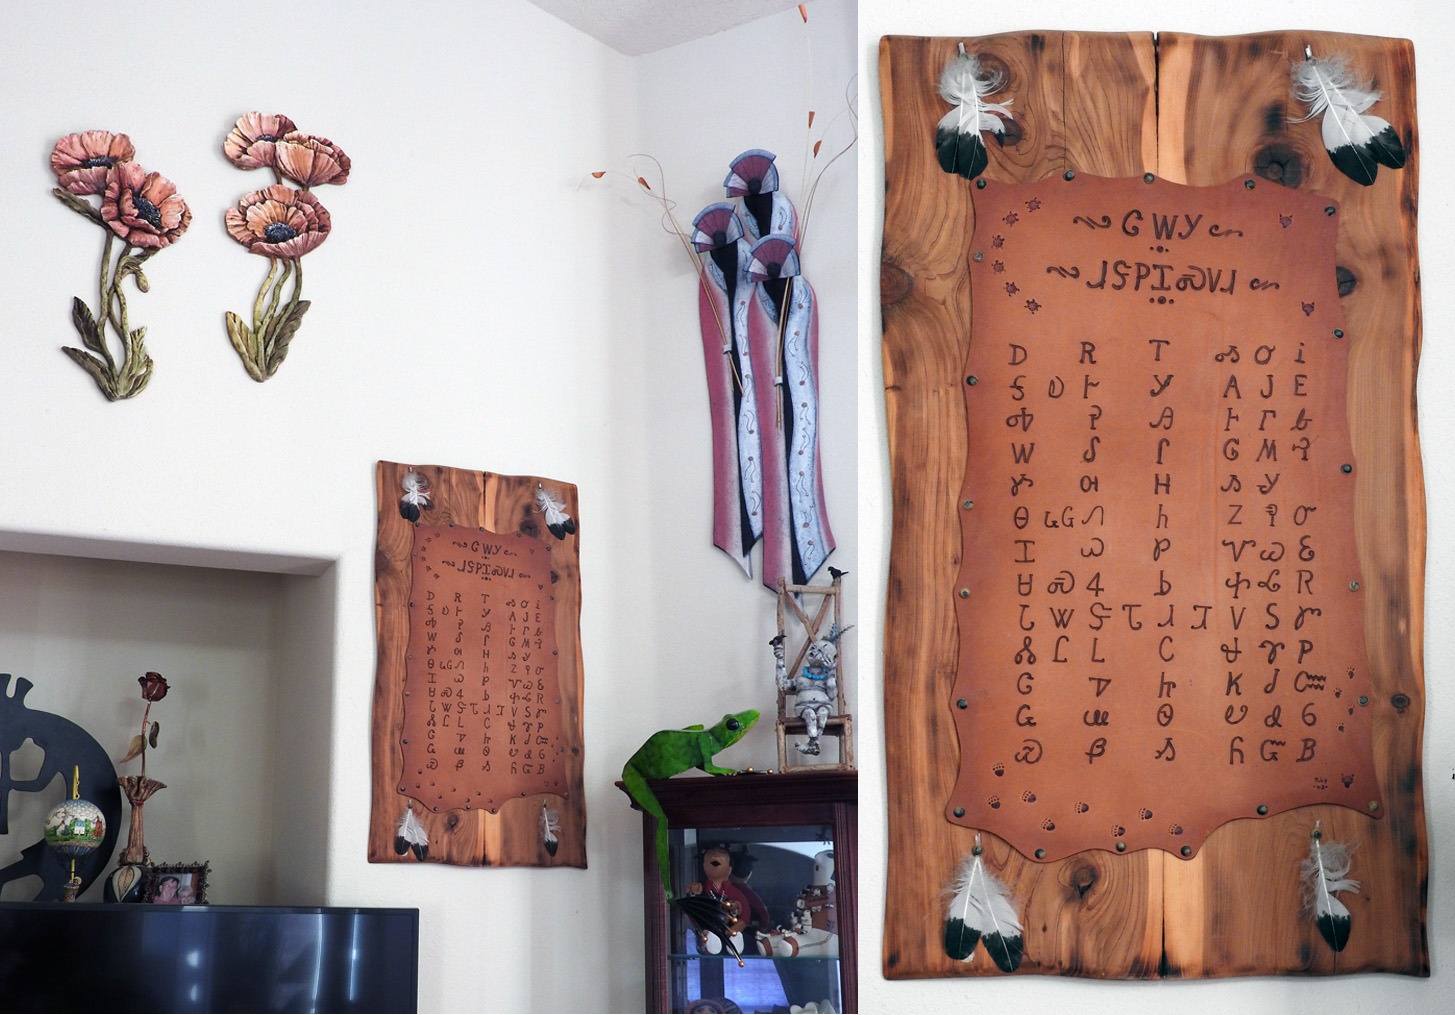 ᏣᎳᎩ
ᏗᏕᎵᏆᏍᏙᏗ
Ꭰ Ꭱ Ꭲ Ꭳ Ꭴ Ꭵ
Ꭶ Ꭷ Ꭸ Ꭹ Ꭺ Ꭻ Ꭼ
Ꭽ Ꭾ Ꭿ Ꮀ Ꮁ Ꮂ
Ꮃ Ꮄ Ꮅ Ꮆ Ꮇ Ꮈ
Ꮉ Ꮊ Ꮋ Ꮌ Ꮍ
Ꮎ Ꮏ Ꮐ Ꮑ Ꮒ Ꮓ Ꮔ Ꮕ
Ꮖ Ꮗ Ꮘ Ꮙ Ꮚ Ꮛ
Ꮜ Ꮝ Ꮞ Ꮟ Ꮠ Ꮡ Ꮢ
Ꮣ Ꮤ Ꮥ Ꮦ Ꮧ Ꮨ Ꮩ Ꮪ Ꮫ
Ꮬ Ꮭ Ꮮ Ꮯ Ꮰ Ꮱ Ꮲ
Ꮳ Ꮴ Ꮵ Ꮶ Ꮷ Ꮸ
Ꮹ Ꮺ Ꮻ Ꮼ Ꮽ Ꮾ
Ꮿ Ᏸ Ᏹ Ᏺ Ᏻ Ᏼ